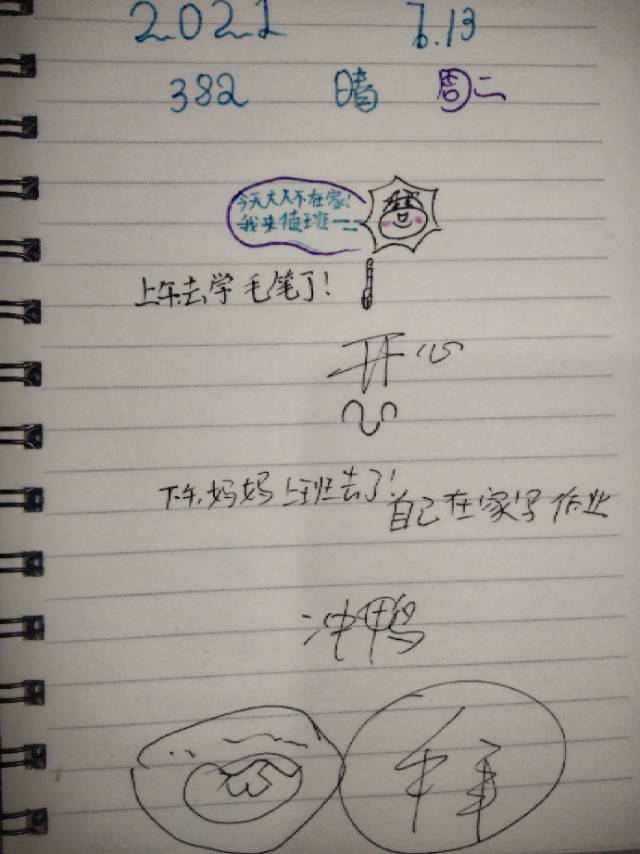 2021 7.13
382 晴 周二
今天大人不在家!
我来值班一二
上午去学毛笔了!
开心
下午,妈妈上班去了!
自己在家写作业
冲鸭
拜